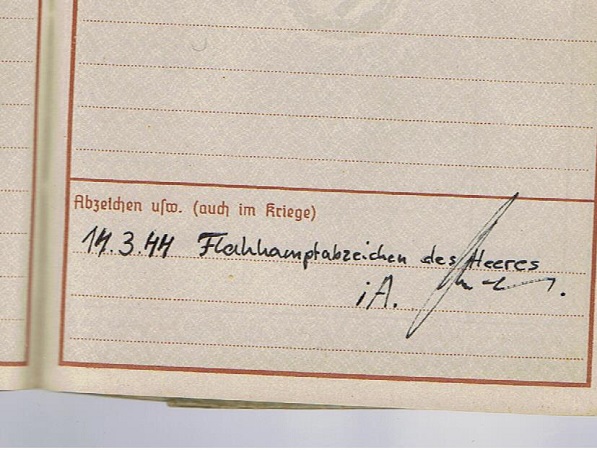 Abzeichen usw. (auch im Kriege)
14.3.44 Flakkampfabzeichen des Heeres
i.A.